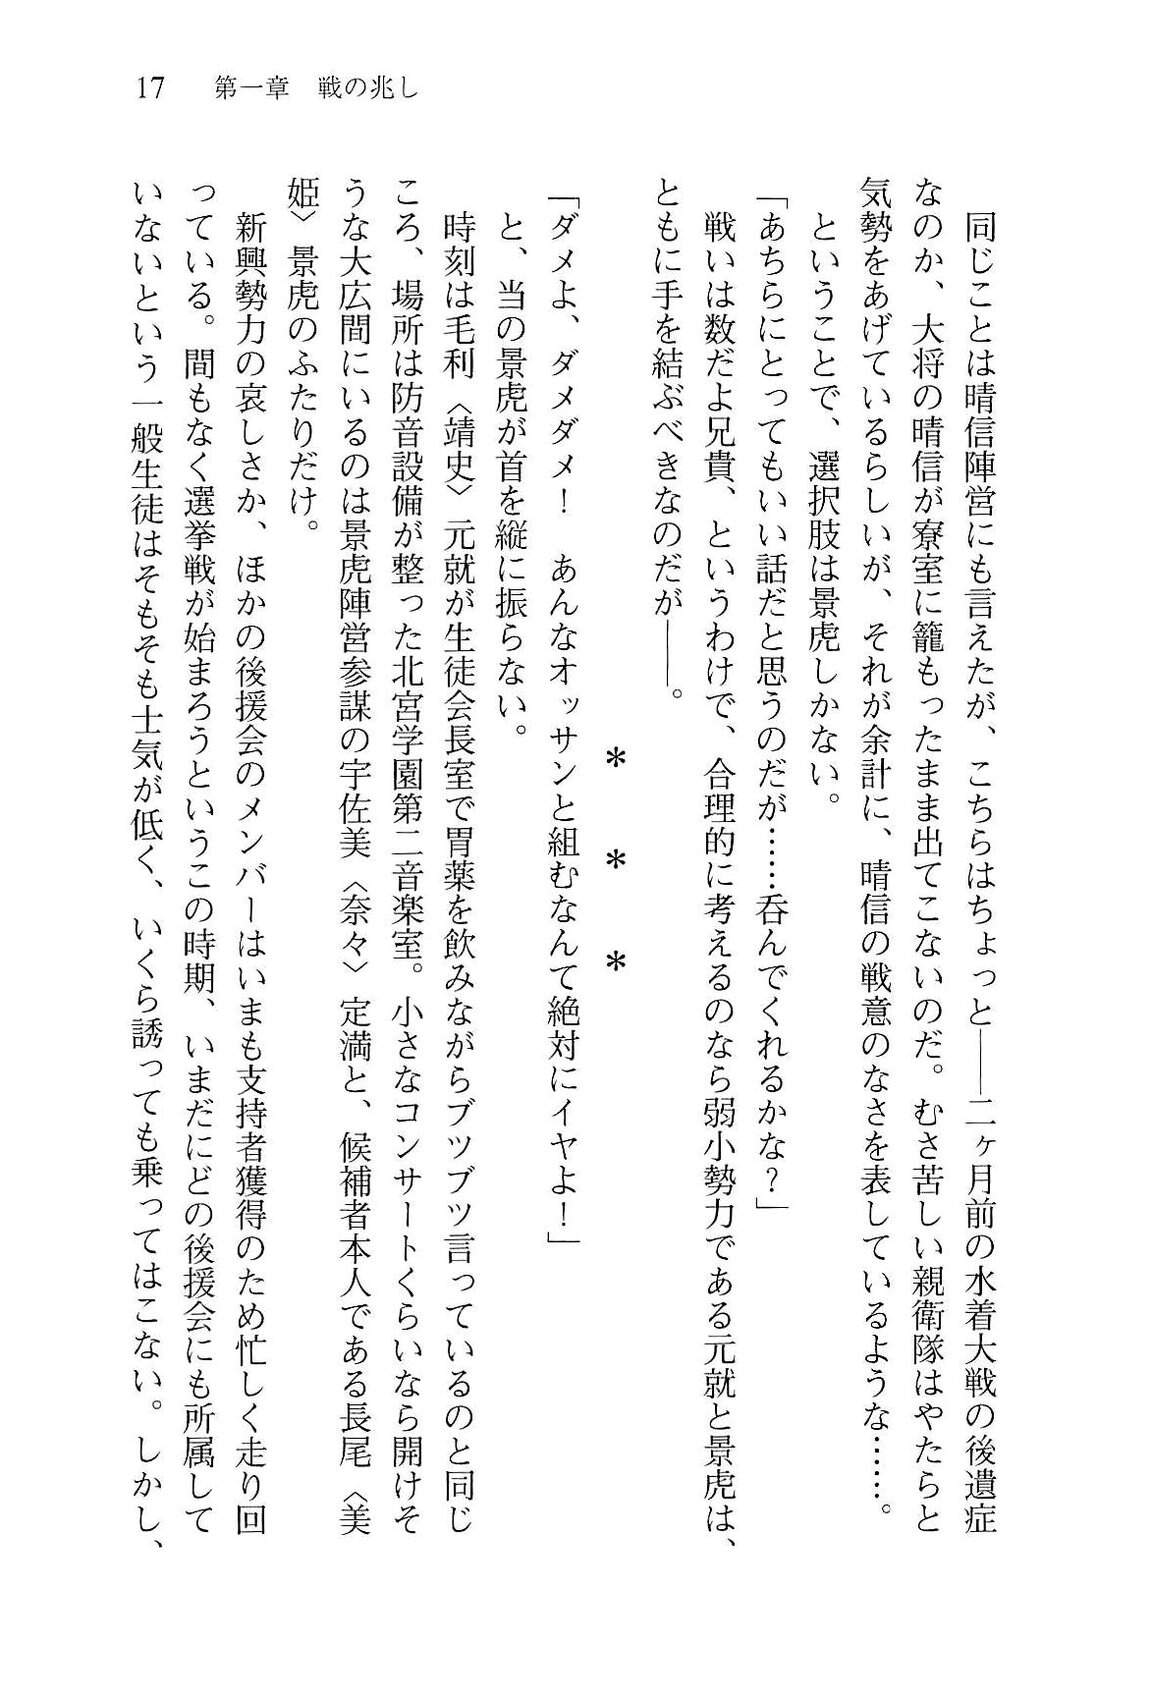 17　第一章　戦の兆し
　同じことは晴信陣営にも言えたが、こちらはちょっと――二ヶ月前の水着大戦の後遺症
なのか、大将の晴信が寮室に籠もったまま出てこないのだ。むさ苦しい親衛隊はやたらと
気勢をあげているらしいが、それが余計に、晴信の戦意のなさを表しているような……。
　ということで、選択肢は景虎しかない。
「あちらにとってもいい話だと思うのだが……呑んでくれるかな？」
　戦いは数だよ兄貴、というわけで、合理的に考えるのなら弱小勢力である元就と景虎は、
ともに手を結ぶべきなのだが――。
＊　＊　＊
「ダメよ、ダメダメ！　あんなオッサンと組むなんて絶対にイヤよ！」
　と、当の景虎が首を縦に振らない。
　時刻は毛利〈靖史〉元就が生徒会長室で胃薬を飲みながらブツブツ言っているのと同じ
ころ、場所は防音設備が整った北宮学園第二音楽室。小さなコンサートくらいなら開けそ
うな大広間にいるのは景虎陣営参謀の宇佐美〈奈々〉定満と、候補者本人である長尾〈美
姫〉景虎のふたりだけ。
　新興勢力の哀しさか、ほかの後援会のメンバーはいまも支持者獲得のため忙しく走り回
っている。間もなく選挙戦が始まろうというこの時期、いまだにどの後援会にも所属して
いないという一般生徒はそもそも士気が低く、いくら誘っても乗ってはこない。しかし、